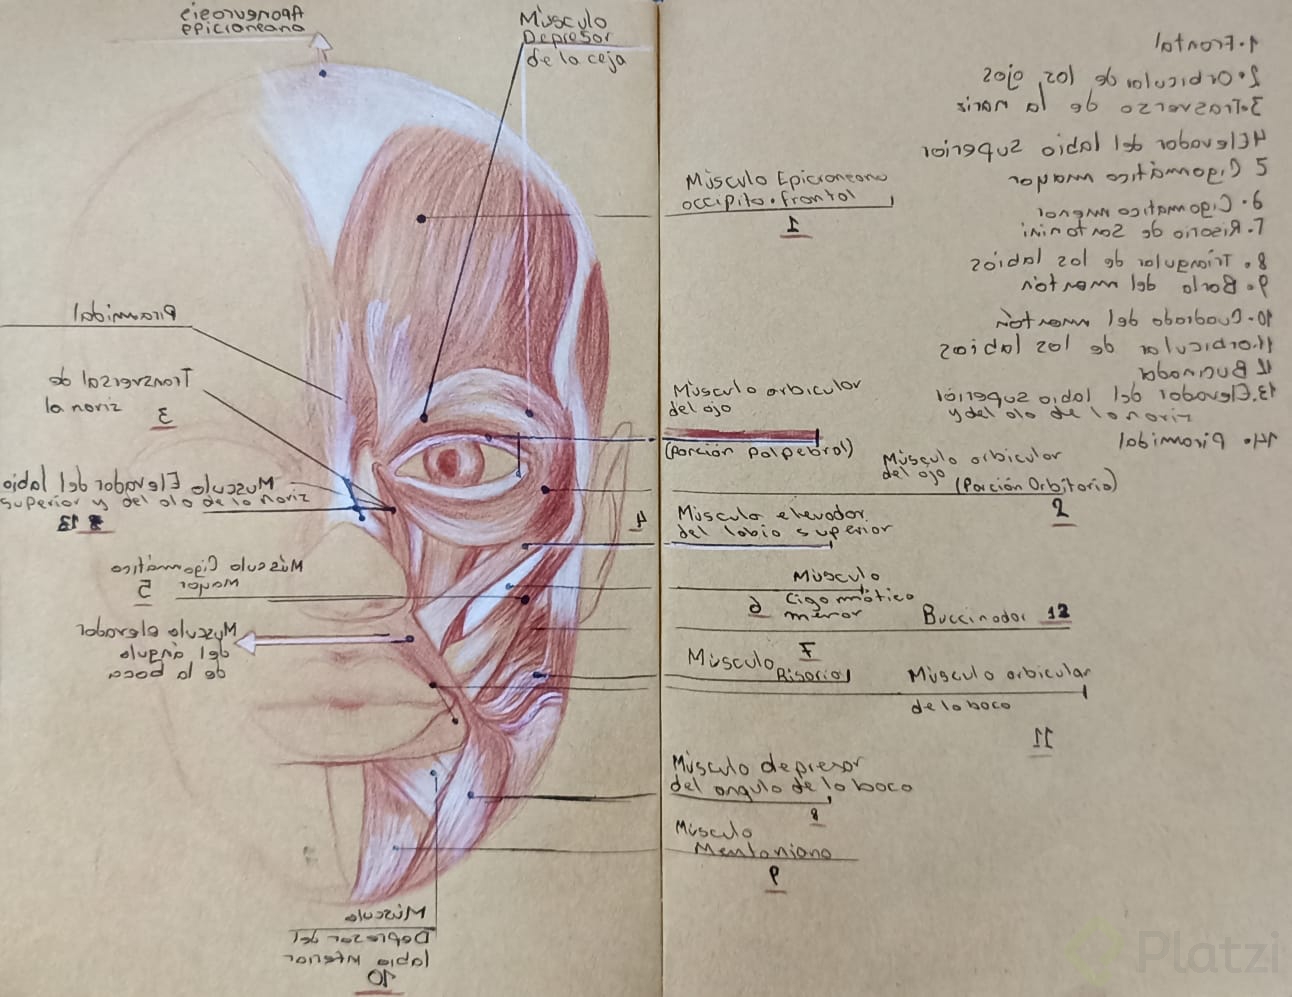 Aponeurosis
epicraneana
Músculo
Depresor
de la ceja
Piramidal
Transversal de
la nariz
3
Musculo Elevador del labio
superior y del ala de la nariz
13
Músculo Cigomático
Mayor 5
Musculo elevador
del ángulo
de la boca
Músculo
Depresor del
labio inferior
10
Músculo Epicraneano
occipito.frontal
1
Músculo orbicular
del ojo
(Porción Palpebral)
Músculo orbicular
del ojo
(Porción Orbitaria)
2
4
Músculo elevador
del labio superior
Músculo
Cigomático
menor
6
Buccinador 12
7
Músculo
Risorio
Músculo orbicular
de la boca
11
Músculo depresor
del angulo de la boca
8
Músculo
Mentoniano
9
1.Frontal
2.Orbicular de los ojos
3.Trasverso de la nariz
4Elevador del labio superior
5 Cigomático mayor
6.Cigomatico menor
7.Risorio de Santorini
8.Triangular de los labios
9.Borla del mentón
10.Cuadrado del mentón
11.orbicular de los labios
12 Bucinador
13.Elevador del labio superior
y del ala de la nariz
14. Piramidal
Platzi